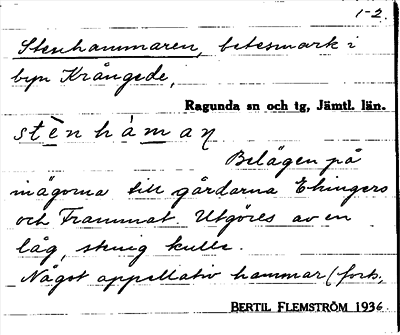 1-2.
Stenhammaren, betesmark i
byn Krångede,
Ragunda sn och tg, Jämtl. län.
stè̀nhàmaɳ
Belägen på
inägorna till gårdarna Ehingers
och Frammat. Utgöres av en
låg, stenig kulle.
Något appellativ hammar (forts.
BERTIL FLEMSTRÖM 1936.